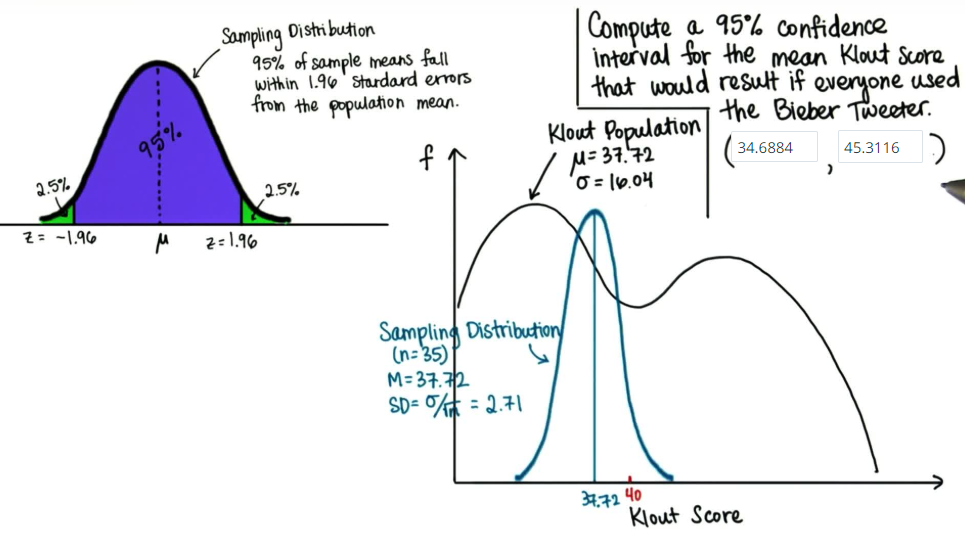 Sampling Distribution
95% of sample means fall
within 1.96 standard errors
from the population mean.
95%
2.5%
2.5%
z = -1.96
μ
z = 1.96
Compute a 95% confidence
interval for the mean Klout Score
that would result if everyone used
the Bieber Tweeter.
(34.6884, 45.3116)
Klout Population
μ = 37.72
σ = 16.04
f
Sampling Distribution
(n=35)
M=37.72
SD= σ/√n = 2.71
37.72 40
Klout Score